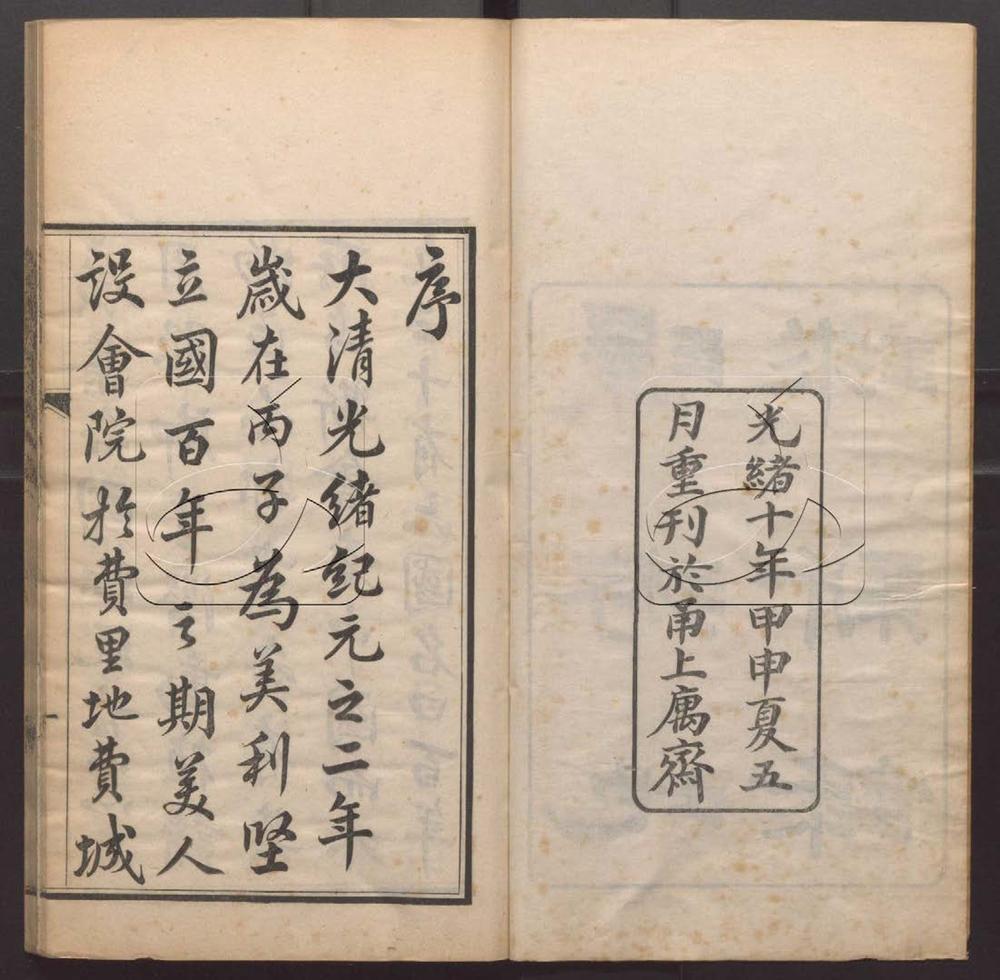 光緒十年甲申夏五
月重刊於甬上寓齋
序
大清光緒紀元之二年
歲在丙子為美利堅
立國百年之期美人
設會院於費里地費城